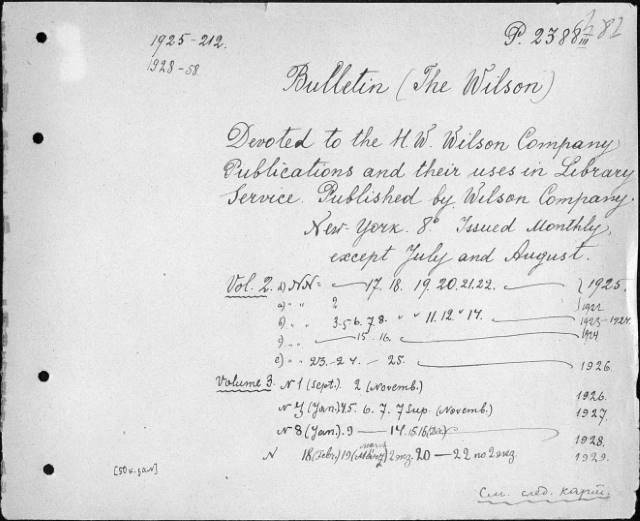 1925-212.
1928-58.
P. 2388 III
Bulletin (The Wilson)
Devoted to the H. W. Wilson Company
Publications and their uses in Library
Service. Published by Wilson Company.
New-York. 8° Issued Monthly,
except July and August.
Vol. 2. NN- 17. 18. 19. 20. 21. 22. — 1925.
2 1922
3-5 6. 7 8. " " 11. 12. " 14. 1923-1924
15. 16. 1924
e) " " 23.-24. - 25. 1926.
Volume 3. N 1 (Sept.). 2 (Novemb.) 1926.
(Jan.) 4.5. 6. 7. 7 sup. (Novemb.) 1927.
N 8 (Jan). 9 — 14. 1928.
N 18 (Febr.) 19 (März) 2 экз. 20 — 22 по 2 экз. 1929.
См. след. карт.